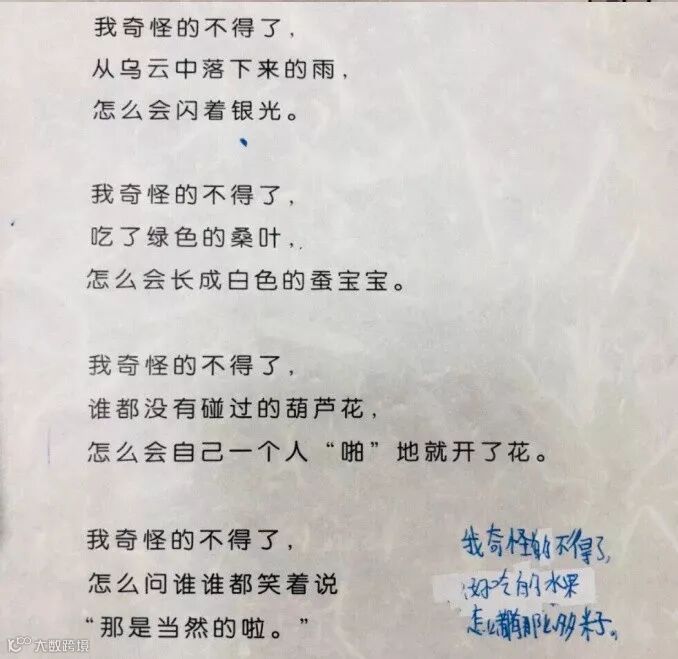 我奇怪的不得了，
从乌云中落下来的雨，
怎么会闪着银光。
我奇怪的不得了，
吃了绿色的桑叶，
怎么会长成白色的蚕宝宝。
我奇怪的不得了，
谁都没有碰过的葫芦花，
怎么会自己一个人“啪”地就开了花。
我奇怪的不得了，
怎么问谁谁都笑着说
“那是当然的啦。”
我奇怪的不得了，
好吃的水果
怎么都有那么多籽。
大数跨境